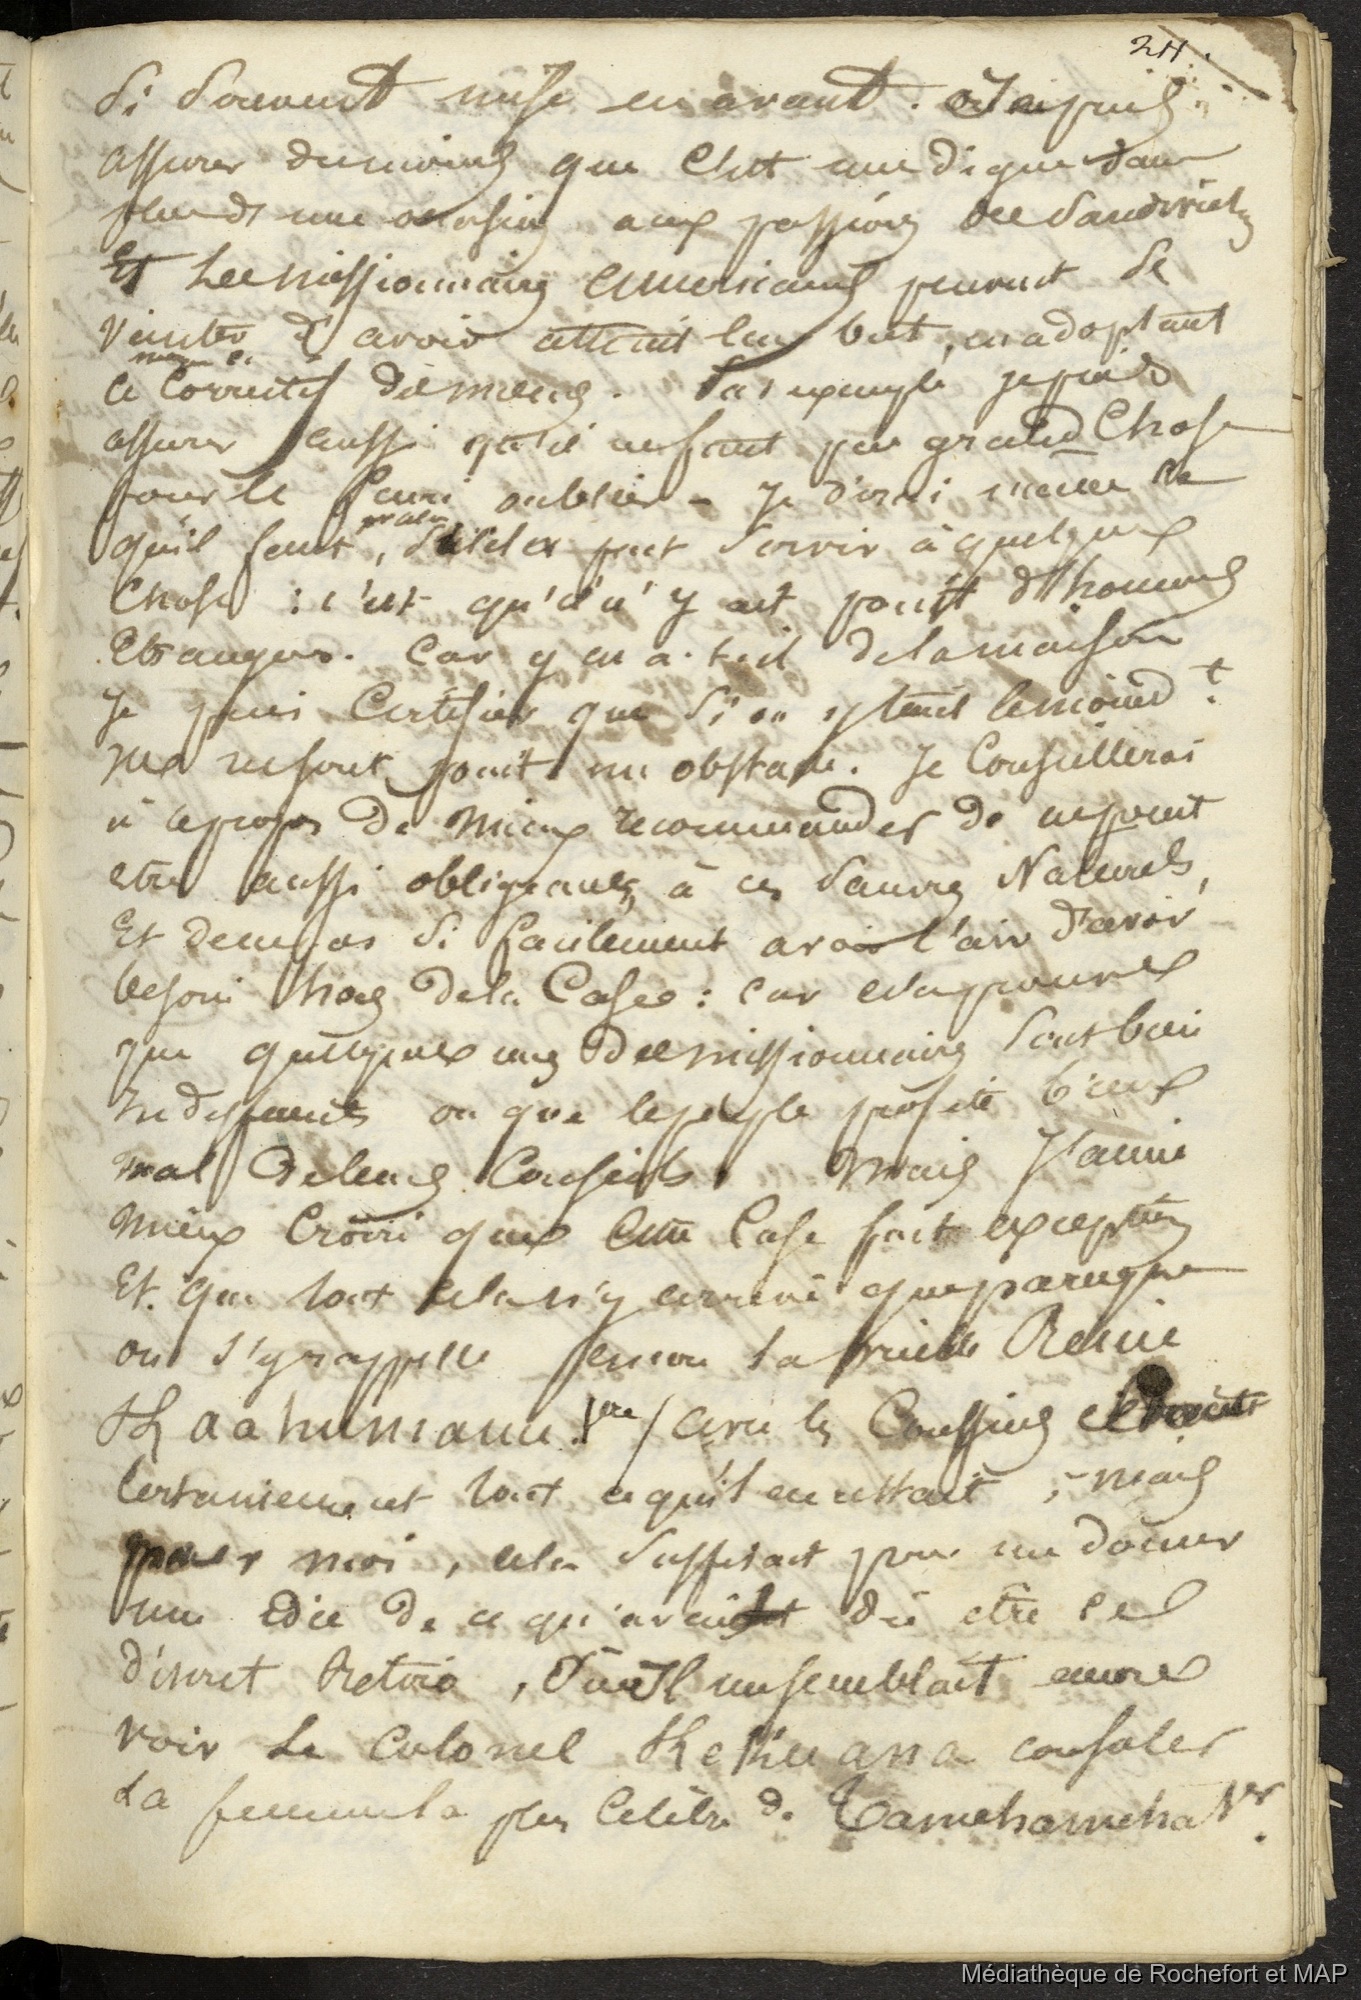 211.
Si Souvent mise en avant. Je puis
assurer du moins que C'est une digue dans
plus d'une occasion aux passions des Sandwichs
Et Les missionnaires americains peuvent se
Vanter d'avoir atteint leur but, en adoptant
ce Correctif des mœurs. Par exemple je puis
assurer aussi qu'il ne faut pas grand Chose
pour le faire oublier - Je dirai même ce
qu'il faut, Si cela peut Servir à quelque
Chose : c'est qu'il n'y ait point d'hommes
Etrangers. Car y en a-t-il de la maison
Je puis Certifier que Si on y tient le moins
ne font point un obstacle. Je Conseillerai
à ce propos de mieux recommander de ne point
etre aussi obligeants à ces Pauvres Naturels,
Et de ne pas Si facilement avoir l'air d'avoir
besoin hors de la Case : car cela prouve
que quelques uns des missionnaires Sont bien
Indifférents ou que le peuple profite bien
mal de leurs Conseils. Mais J'aime
mieux Croire que Cette Case fait exception
Et que tout cela n'y arrive que parceque
on s'y rappelle la vieille Reine
Kaahumanu 1ere / avec les Coussins
Certainement tout ce qu'il en restait ; mais
pour moi, cela Suffisait pour me donner
une idée de ce qu'avait dû être ce
discret Retrio, Où Il me semblait encore
voir Le Colonel Kekuana consoler
La femme la plus Célèbre de Tamehameha 1er.
Médiathèque de Rochefort et MAP